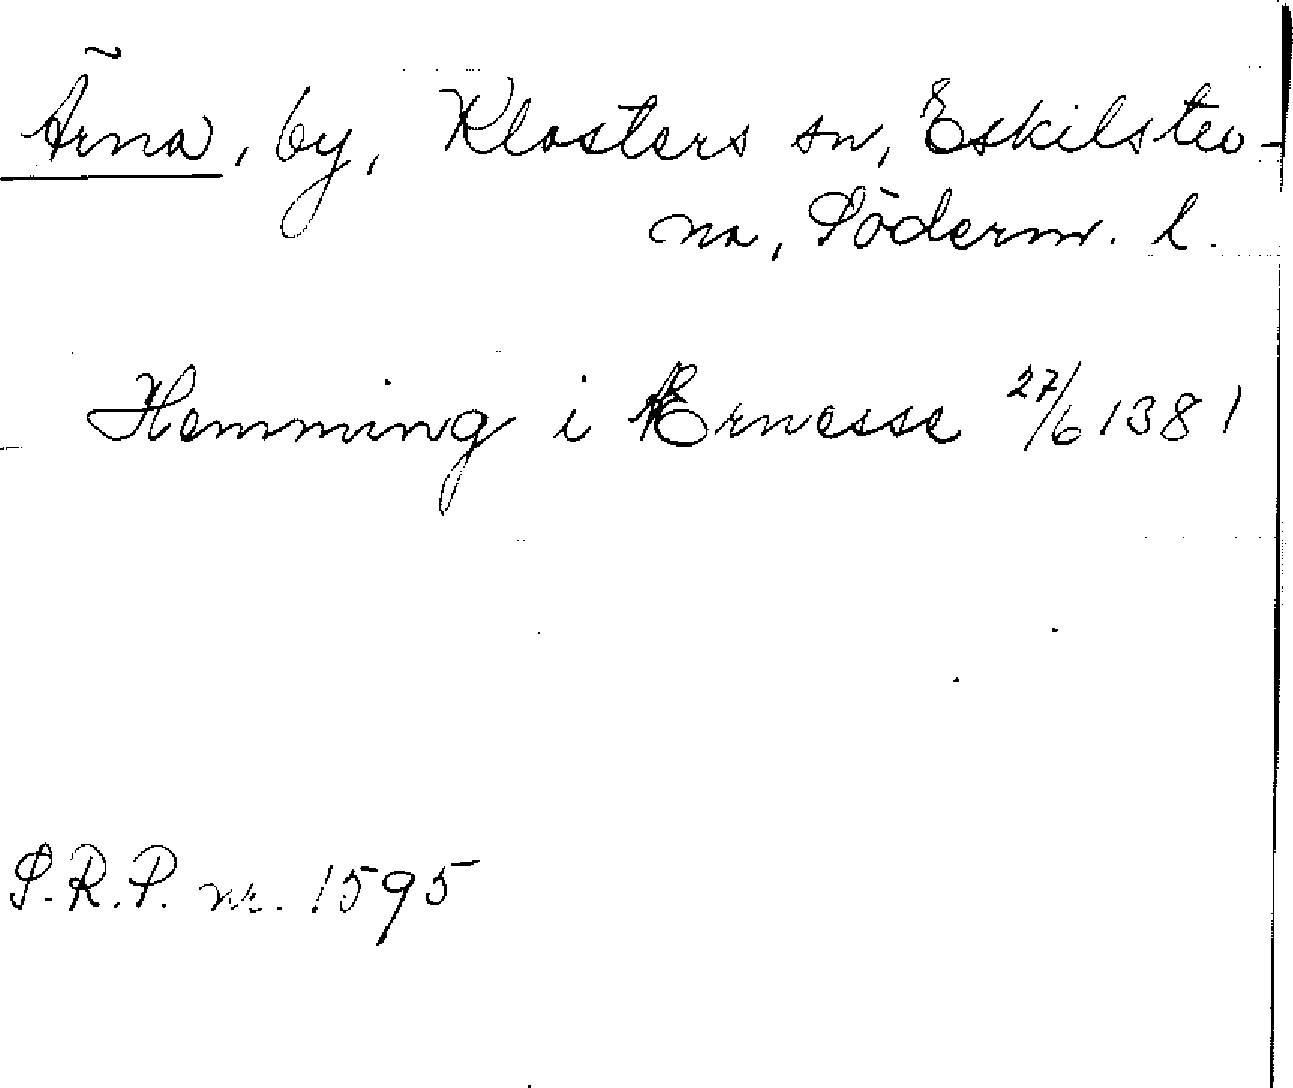 Ärna, by, Klosters sn, Eskilstu-
na, Söderm. l.
Hemming i Ernesse 27/6 1381
S.R.P. nr. 1595